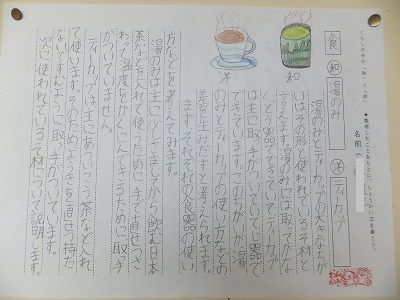 くらしの中の「和」と「洋」
★整理したことをもとに、しょうかい文を書こう。
名前
食 和 湯のみ 洋 ティーカップ
和
洋
湯のみとティーカップの大きなちが
いはその形と使われているそ材と
言えます。湯のみには取っ手がな
くとう器でできていてティーカップ
は主に取っ手がついていてじ器で
できています。このちがいが湯
のみとティーカップの使い方などの
差を生みだすと考えられます。
まず、それぞれの食器の使い
方などを考えてみます。
湯のみは主に少しさましてから飲む日本
茶などを入れて使うために手で直せつさ
わって温度をかくにんできるために取っ手
がついていません。
ティーカップは、主にあついこう茶などを入れ
て使います。そのためようきを直せつ持た
ないですむように取っ手がついています。
次に使われているそ材について説明します。